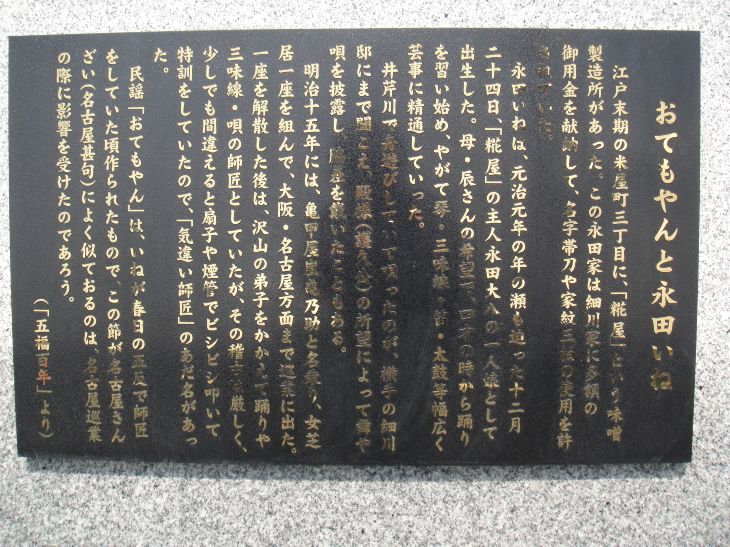 おてもやんと永田いね
江戸末期の米屋町三丁目に、「糀屋」という味噌
製造所があった。この永田家は細川家に多額の
御用金を献納して、名字帯刀や家紋の使用を許
されていた。
永田いねは、元治元年の年の瀬も迫った十二月
二十四日、「糀屋」の主人永田大八の一人娘として
出生した。母・辰さんの希望で、四才の時から踊り
を習い始め、やがて琴・三味線・笛・太鼓等幅広く
芸事に精通していった。
井芹川で舟遊びしていて唄ったのが、横手の細川
邸にまで聞こえ、殿様の所望によって舞や
唄を披露し、を戴いたこともある。
明治十五年には、亀甲屋嵐亀乃助と名乗り、女芝
居一座を組んで、大阪・名古屋方面まで巡業に出た。
一座を解散した後は、沢山の弟子をかかえて踊りや
三味線・唄の師匠としていたが、その稽古は厳しく、
少しでも間違えると扇子や煙管でビシビシ叩いて
特訓をしていたので、「気違い師匠」のあだ名があっ
た。
民謡「おてもやん」は、いねが春日の五反で師匠
をしていた頃作られたもので、この節が名古屋さん
ざい(名古屋甚句)によく似ておるのは、名古屋巡業
の際に影響を受けたのであろう。
(「五福百年」より)